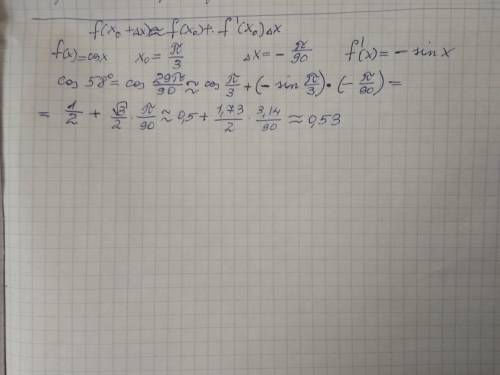 f(x₀+Δx)≈f(x₀)+f'(x₀)Δx
f(x)=cosx x₀=π/3 Δx=-π/90 f'(x)=-sin x
cos 58°=cos 29π/90≈cos π/3+(-sin π/3)·(-π/90)=
=1/2+√3/2·π/90≈0,5+1,73/2·3,14/90≈0,53